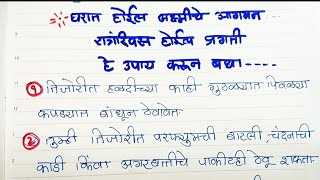 घरात होईल लक्ष्मीचे आगमन
रात्रंदिवस होईल प्रगती
हे उपाय करून बघा----
① तिजोरीत हळदीच्या काही गुठळ्यात पिवळ्या
कपड्यात बांधून ठेवावेत.
② तुम्ही तिजोरीत परफ्युमची बाटली, चंदनाची
काडी किंवा अगरबत्तीचे पाकीटही ठेवू शकता-